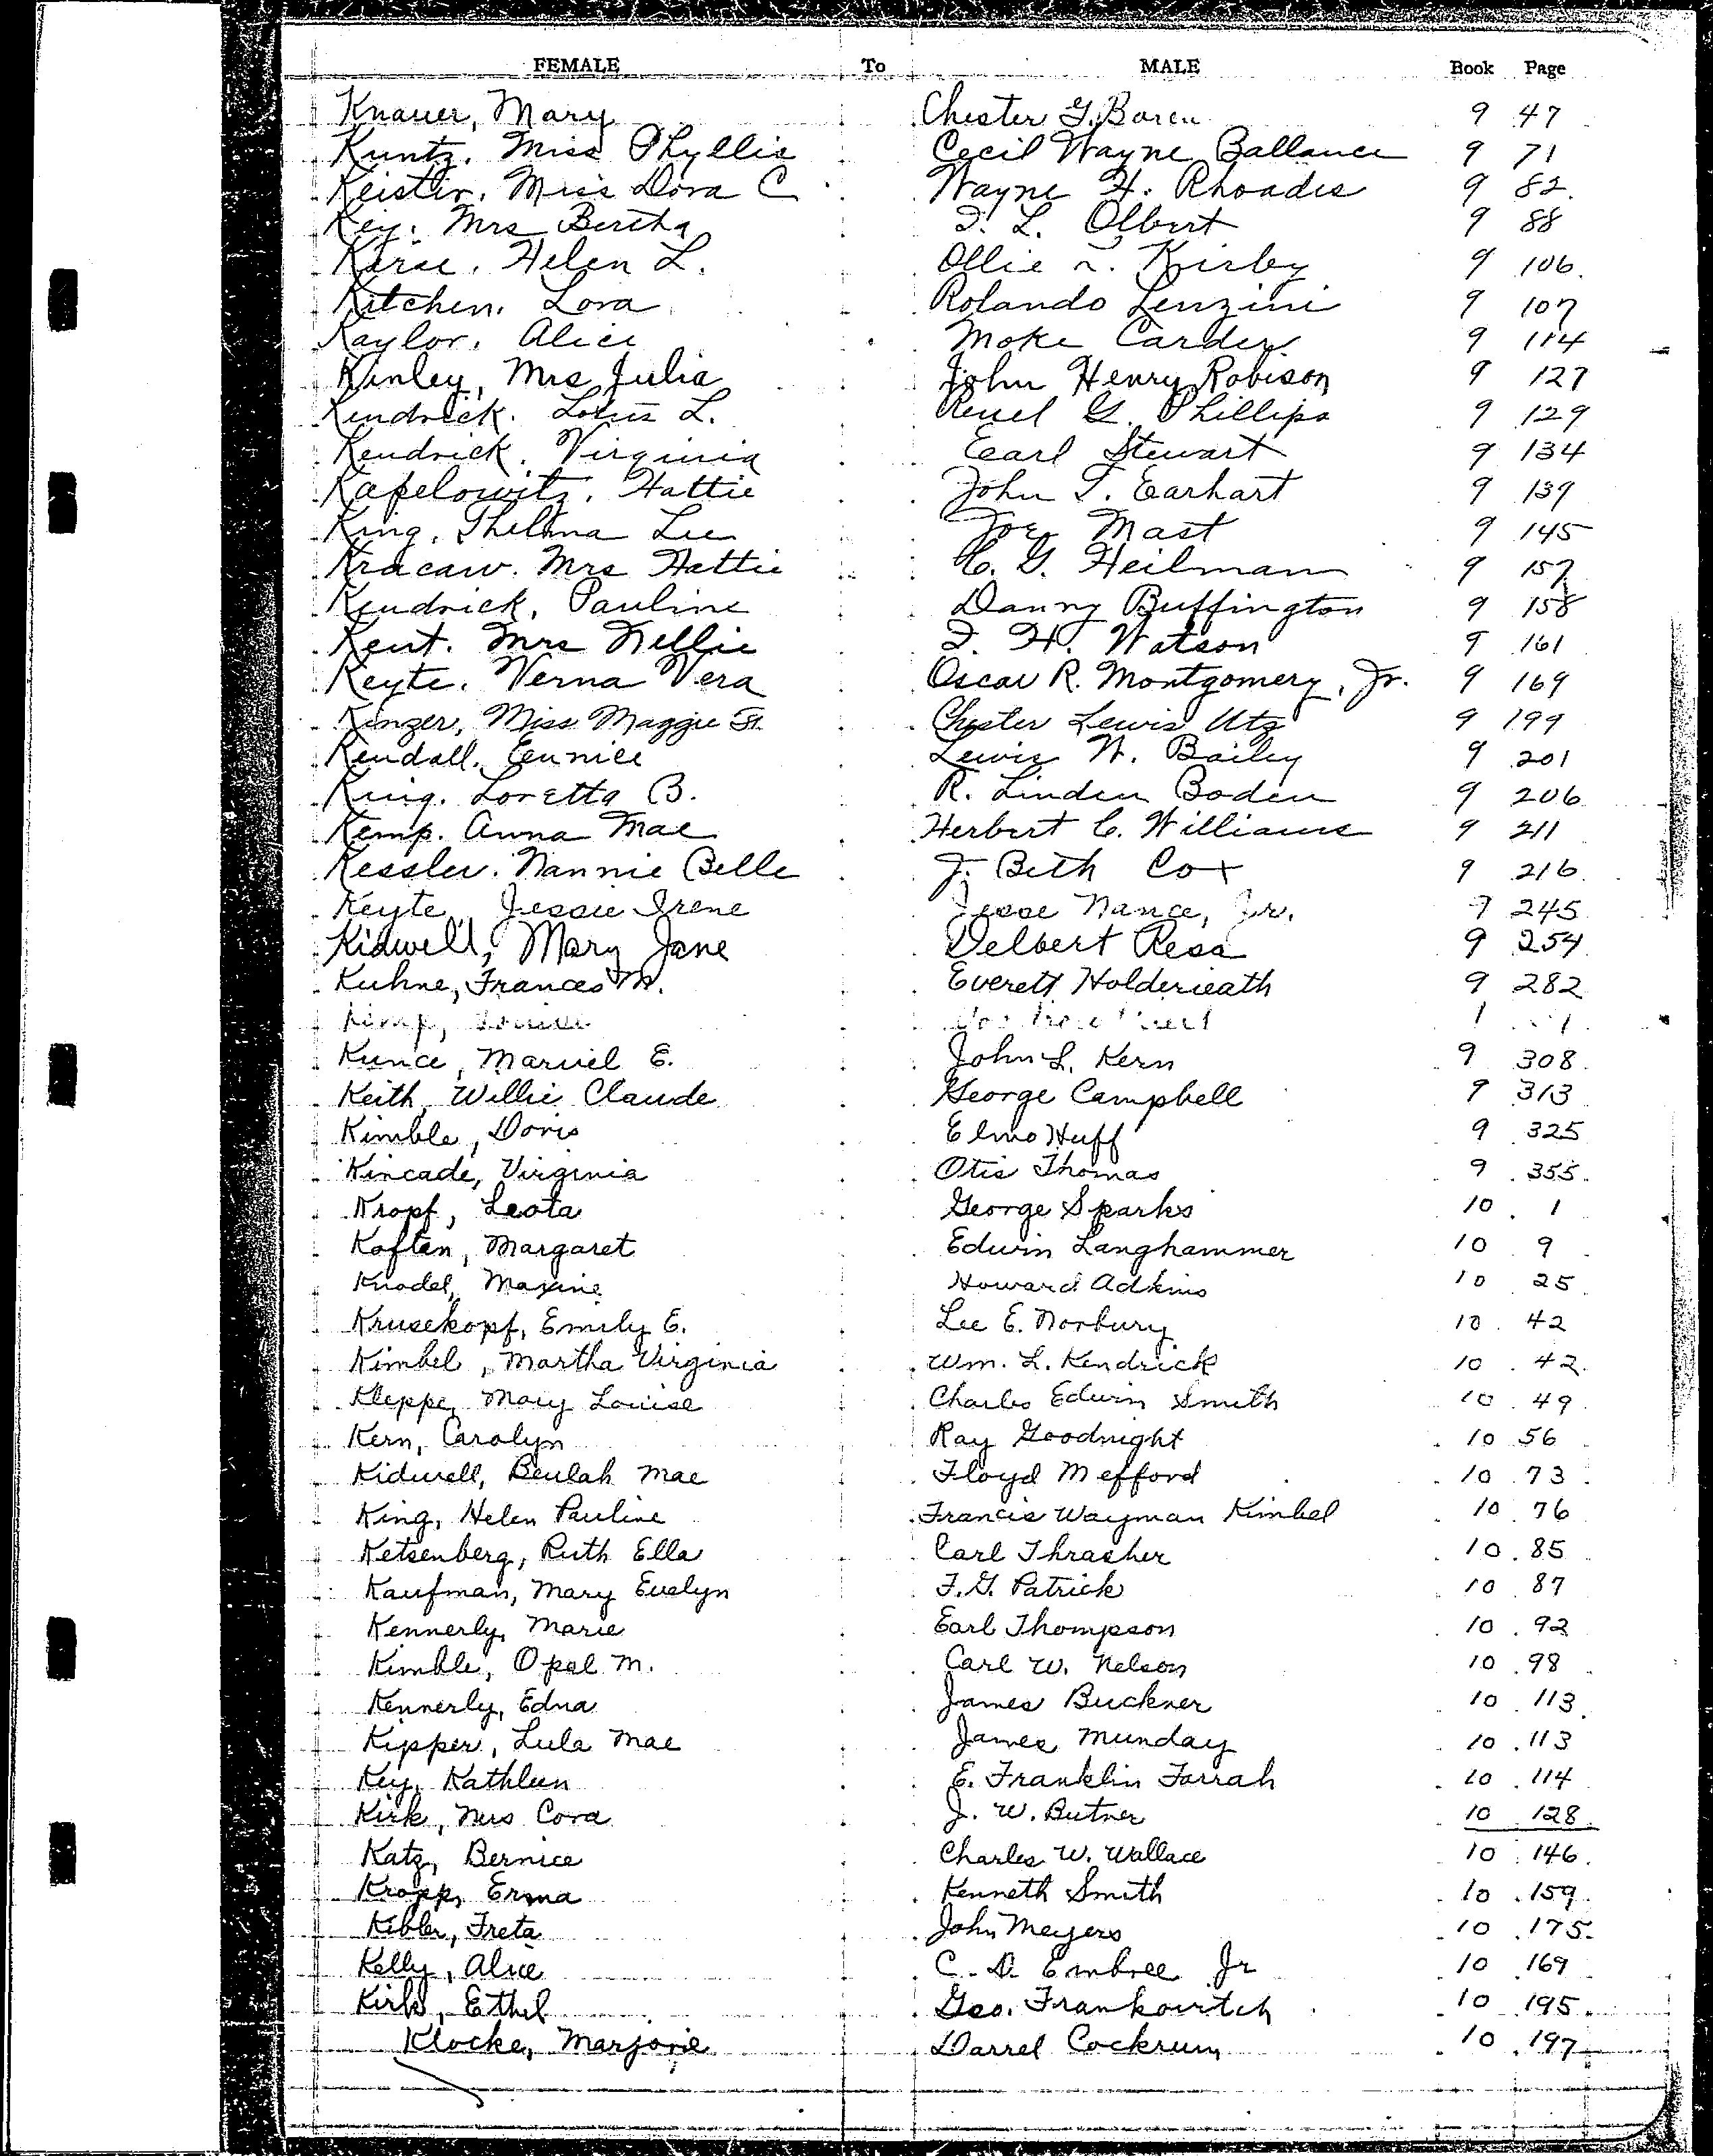 FEMALE To MALE Book Page
Knauer, Mary Chester G. Boren 9 47
Kuntz, Miss Phyllis Cecil Wayne Ballance 9 71
Keister, Miss Dora C Wayne H. Rhoades 9 82
Key, Mrs Bertha L. Olbert 9 88
Helen L. Ollie Kirby 9 106
Kitchen, Lora Rolando Lenzini 9 107
Kaylor, Alice Moke Carder 9 114
Kinley, Mrs Julia John Henry Robison 9 127
Kendrick, L. Reuel G. Phillips 9 129
Kendrick, Virginia Earl Stewart 9 134
Kapelowitz, Hattie John T. Earhart 9 139
King, Thelma Lee Joe Mast 9 145
Kracaw, Mrs Hattie C. G. Heilman 9 157
Kendrick, Pauline Danny Buffington 9 158
Kent, Mrs Nellie H. Watson 9 161
Keyte, Verna Vera Oscar R. Montgomery, Jr. 9 169
Kinzer, Miss Maggie Chester Lewis Utz 9 199
Kendall, Eunice Lewis W. Bailey 9 201
King, Loretta B. R. Linden Boden 9 206
Kemp, Anna Mae Herbert C. Williams 9 211
Kessler, Nannie Belle J. Beth Cox 9 216
Keyte, Jessie Irene Jesse Nance, Jr. 9 245
Kidwell, Mary Jane Delbert Ress 9 254
Kuhne, Frances M. Everett Holderieath 9 282
Kunce, Marvel E. John L. Kern 9 308
Keith, Willie Claude George Campbell 9 313
Kimble, Doris Elmo Huff 9 325
Kincade, Virginia Otis Thomas 9 355
Kropf, Leota George Sparks 10 1
Koften, Margaret Edwin Langhammer 10 9
Knodel, Maxine Howard Adkins 10 25
Krusekopf, Emily E. Lee E. Norbury 10 42
Kimbel, Martha Virginia Wm. L. Kendrick 10 42
Kleppe, Mary Louise Charles Edwin Smith 10 49
Kern, Carolyn Ray Goodnight 10 56
Kidwell, Beulah Mae Floyd Mefford 10 73
King, Helen Pauline Francis Wayman Kimbel 10 76
Ketsenberg, Ruth Ella Carl Thrasher 10 85
Kaufman, Mary Evelyn F. G. Patrick 10 87
Kennerly, Marie Earl Thompson 10 92
Kimble, Opal M. Carl W. Nelson 10 98
Kennerly, Edna James Buckner 10 113
Kipper, Lula Mae James Munday 10 113
Key, Kathleen E. Franklin Farrah 10 114
Kirk, Mrs Cora J. W. Butner 10 128
Katz, Bernice Charles W. Wallace 10 146
Kropp, Erma Kenneth Smith 10 159
Kibler, Freta John Meyers 10 175
Kelly, Alice C. D. Embree Jr 10 169
Kirk, Ethel Geo. Frankovitch 10 195
Klocke, Marjorie Darrel Cockrum 10 197